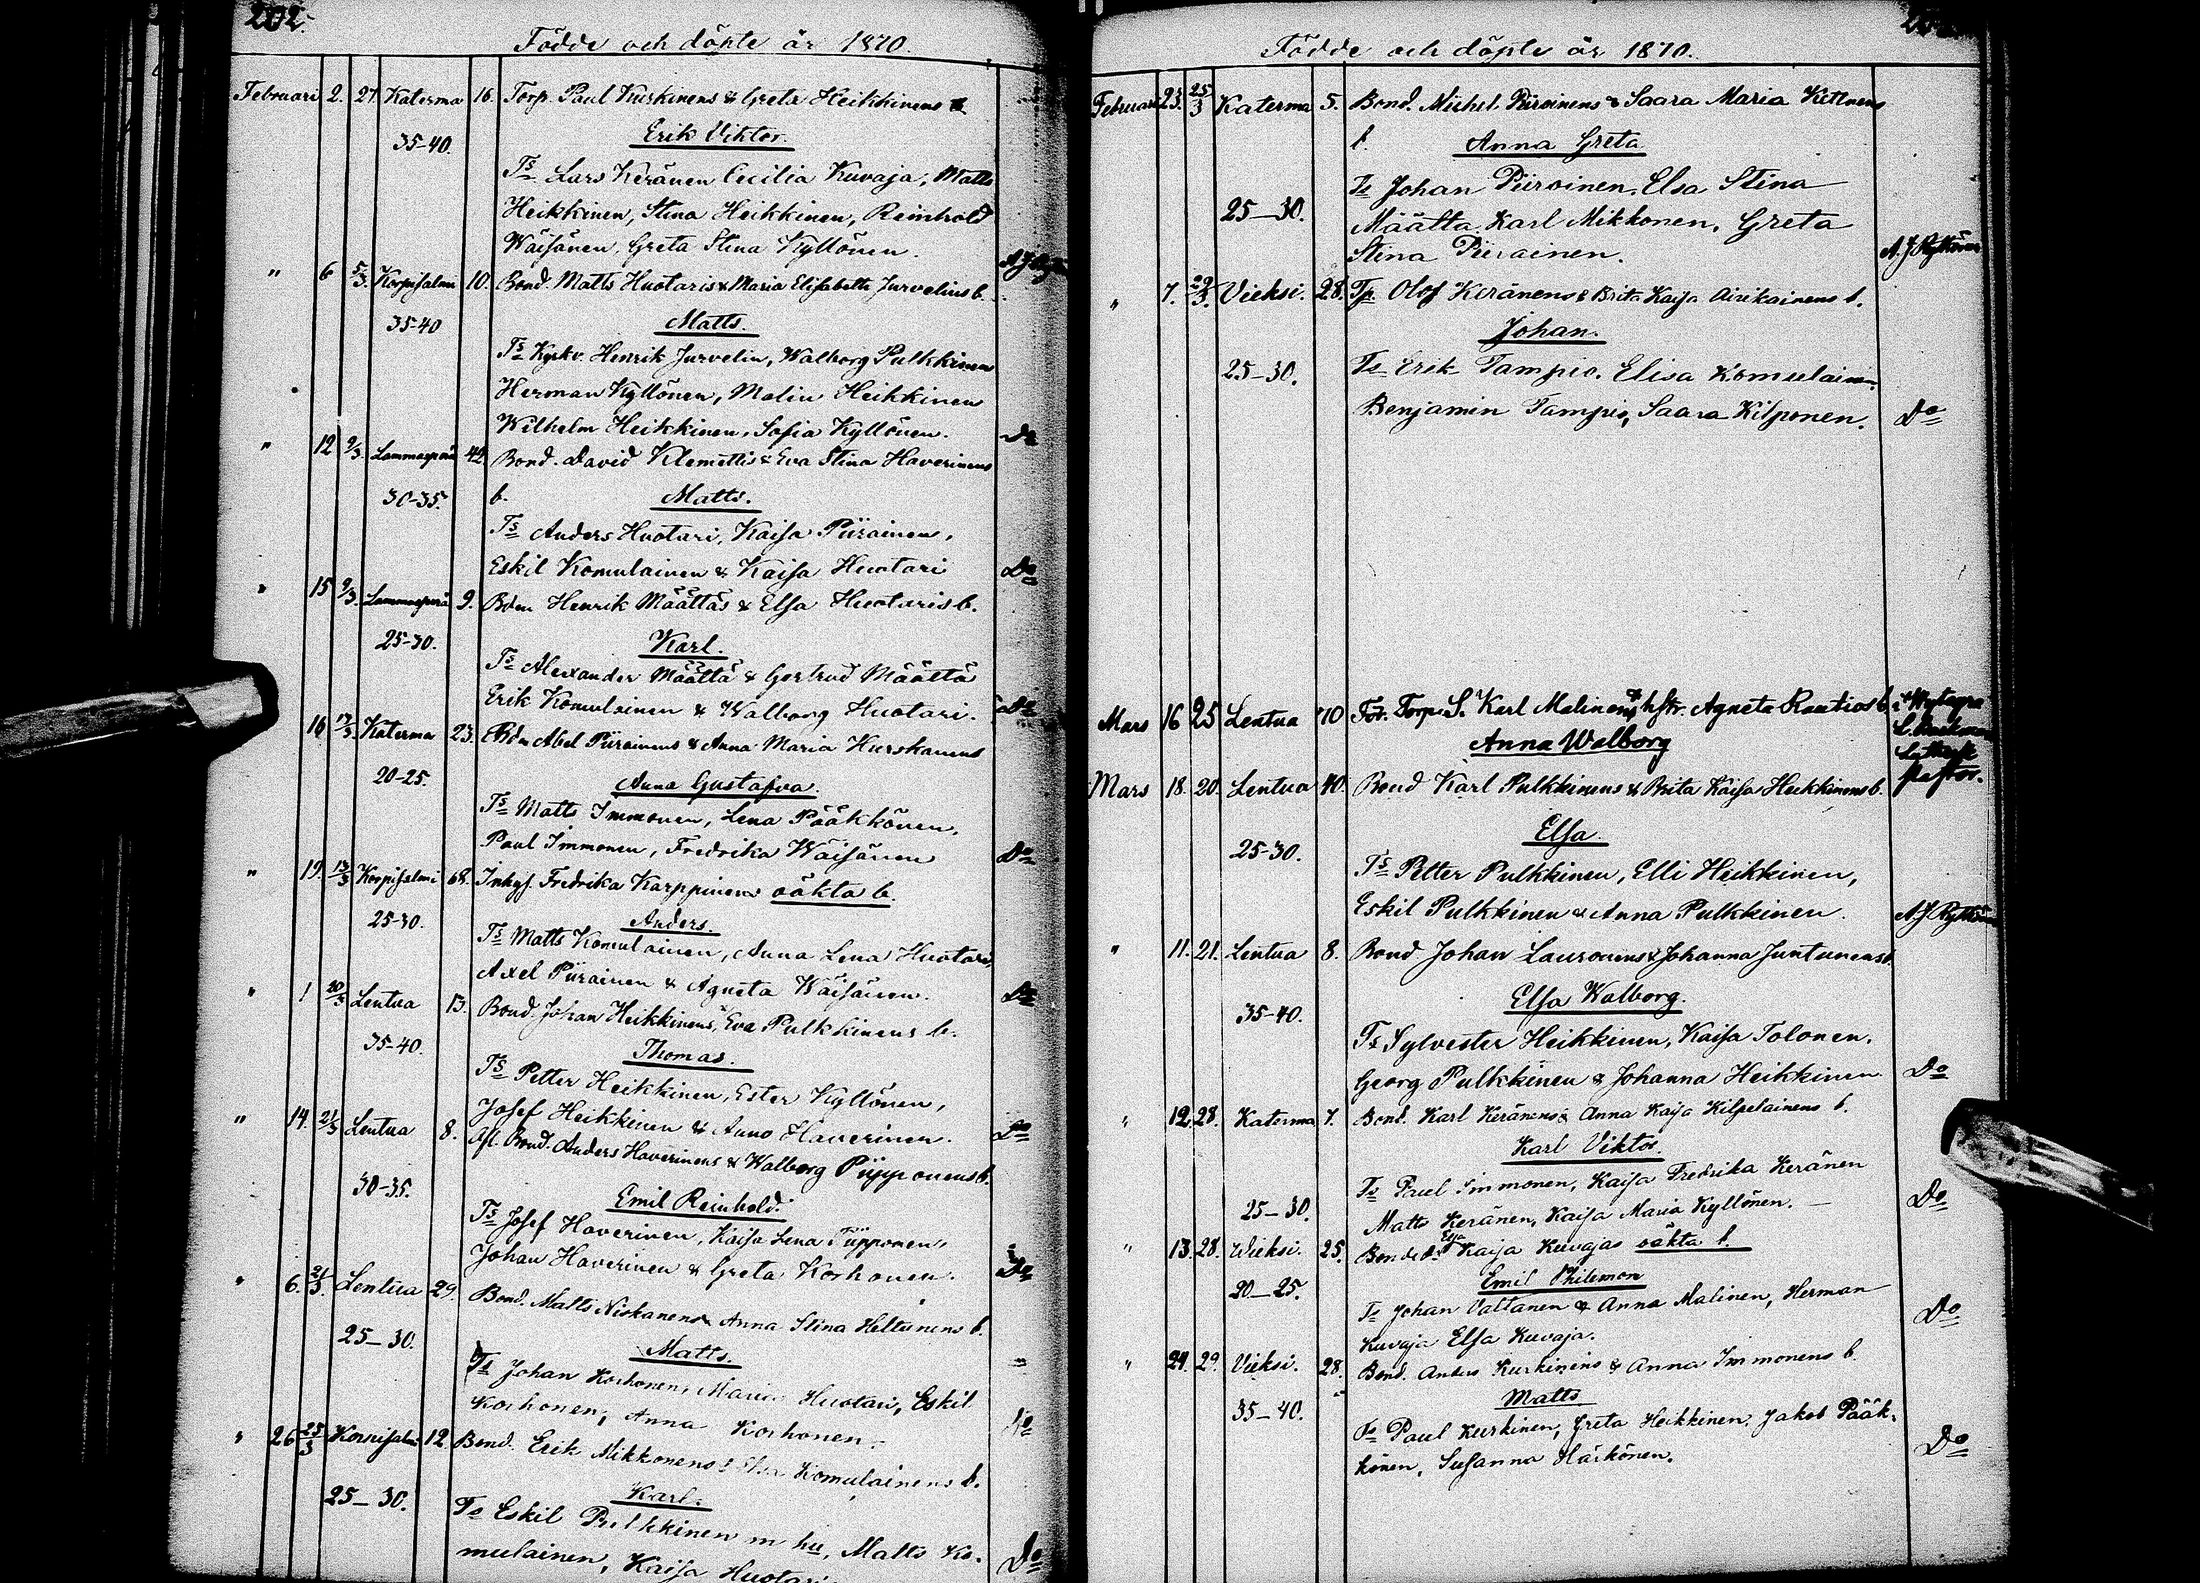 202.
Födde och döpte år 1870.
Februari 2. 27. Katerma 16. Torp. Paul Kurkinens & Greta Heikkinens b.
35-40. Erik Viktor.
Ts Lars Keränen Cecilia Kuvaja, Matts
Heikkinen, Stina Heikkinen, Reinhold
Wäisänen, Greta Stina Kyllönen.
" 6 5/3. Korpisalmi 10. Bond. Matts Huotaris & Maria Elisabeth Jurvelius b.
35-40 Matts.
Ts Kyrkv. Henrik Jurvelin, Walborg Pulkkinen
Herman Kyllönen, Malin Heikkinen
Wilhelm Heikkinen, Sofia Kyllönen. Do
" 12 9/3. Lammasperä 42. Bond. David Klemettis & Eva Stina Haverinens
30-35. b. Matts.
Ts Anders Huotari, Kaisa Piirainen,
Eskil Komulainen & Kaisa Huotari Do
" 15 9/3. Lammasperä 9. Bdn Henrik Määttäs & Elsa Huotaris b.
25-30. Karl.
Ts Alexander Määttä & Gertrud Määttä
Erik Komulainen & Walborg Huotari. Do
16 13/3. Katerma 23. Bdn Abel Piirainens & Anna Maria Hurskanens
20-25. Anna Gustafva.
Ts Matts Immonen, Lena Pääkkönen,
Paul Immonen, Fredrika Wäisänen Do
" 19. 13/3 Korpisalmi 68. Inhys. Fredrika Karppinens oäkta b.
25-30. Anders.
Ts Matts Komulainen, Anna Lena Huotari,
Axel Piirainen & Agneta Wäisänen. Do
" 1 20/3 Lentua 13. Bond. Johan Heikkinens, Eva Pulkkinens b.
35-40. Thomas.
Ts Petter Heikkinen, Ester Kyllönen,
Josef Heikkinen & Anna Haverinen. Do
" 14. 21/3 Lentua 8. Afl. Bond. Anders Haverinens & Walborg Piipponens b.
30-35. Emil Reinhold.
Ts Josef Haverinen, Kaisa Lena Piipponen,
Johan Haverinen & Greta Korhonen. Do
" 6. 21/3. Lentua 29. Bond. Matts Niskanens & Anna Stina Heltunens b.
25-30. Matts. "
Ts Johan Korhonen, Maria Huotari, Eskil
Korhonen, Anna Korhonen. Do
" 26 25/3 Korpisalmi 12 Bond. Erik Mikkonens & Elsa Komulainens b.
25-30. Karl.
Ts Eskil Pulkkinen m hu, Matts Ko-
mulainen, Kaisa Huotari Do
Födde och döpte år 1870.
Februari 23. 25/3 Katerma 5. Bond. Michel Piiroinens & Saara Maria
b. Anna Greta
25-30. Ts Johan Piiroinen, Elsa Stina
Määtta, Karl Mikkonen, Greta
Stina Piirainen. A. J. Kyllönen
" 7. 29/3. Vieksi. 28. Tp. Olof Keränens & Brita Kaisa Airikainens b.
Johan.
25-30. Ts Erik Tampio, Elisa Komulainen.
Benjamin Tampio, Saara Kilponen. Do
Mars 16 25 Lentua 10 Torp. S. Karl Malinens & hstr. Agneta Rautios b.
Anna Walborg
Mars 18. 20. Lentua 40. Bond Karl Pulkkinens & Brita Kaisa Heikkinens b. pastor.
25-30. Elsa.
Ts Petter Pulkkinen, Elli Heikkinen,
Eskil Pulkkinen & Anna Pulkkinen. A. J. Kyllönen
" 11. 21. Lentua 8. Bond Johan Lauronens & Johanna Juntunens b.
35-40. Elsa Walborg.
Ts Sylvester Heikkinen, Kaisa Tolonen,
Georg Pulkkinen & Johanna Heikkinen. Do
" 12. 28. Katerma 7. Bond. Karl Keränens & Anna Kaisa Kilpelainens b.
Karl Viktor.
25-30. Ts Paul Immonen, Kaisa Fredrika Keränen
Matts Keränen, Kaisa Maria Kyllönen. Do
" 13. 28. Wieksi. 25. Bonded. Elsa Kaisa Kuvajas oäkta b.
20-25. Emil Philemon
Ts Johan Valtanen & Anna Malinen, Herman
Kuvaja Elsa Kuvaja. Do
" 24. 29. Vieksi. 28. Bond. Anders Kurkinens & Anna Immonens b.
35-40. Matts
Ts Paul Kurkinen, Greta Heikkinen, Jakob Pääk-
könen, Susanna Härkönen. Do